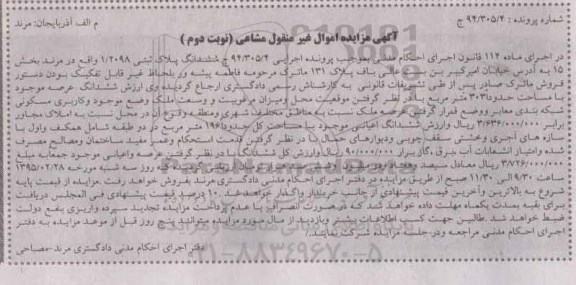 شماره پرونده : ۹۴/۳۰۵/۴ ج
م الف آذربایجان: مرند
آگهی مزایده اموال غیر منقول مشاعی (نوبت دوم )
در اجرای ماده ۱۱۴ قانون اجرای احکام مدنی بموجب پرونده اجرایی ۹۴/۳۰۵/۴ ج ششدانگ پلاک ثبتی ۱/۲۰۹۸ واقع در مرند بخش
۱۵ به آدرس خیابان امیرکبیر بن پلاک ۱۳۱ ماترک مرحومه فاطمه پیشه ور بلحاظ غیر قابل تفکیک بودن دستور
فروش ماترک صادر پس از طی تشریفات قانونی به کارشناس رسمی دادگستری ارجاع گردیده وی ارزش ششدانگ عرصه موجود
با مساحت حدود۳۰۳ متر مربع با در نظر گرفتن موقعیت محل ومیزان مرغوبیت و وسعت ملک وضع موجود وکاربری مسکونی
شبکه بندی معابر ووضع قرار گرفتن عرصه ملک نسبت به مناطق مختلف شهری ومنطقه وقوع آن در محل نسبت به املاک مجاور
برابر ۳/۶۳۶/۰۰۰/۰۰۰ ریال وارزش ششدانگ اعیانی موجود با مساحت کل حدود۱۹۶ متر مربع در دو طبقه شامل همکف واول با
سازه های آجری وخشتی سقف چوبی ودیوارهای حمال با در نظر گرفتن قدمت استحکام وعمر مفید ساختمان ومصالح مصرف
شده وامتیاز انشعابات آب ،برق ،گاز برابر ۹۰/۰۰۰/۰۰۰ ریال وارزش کل ششدانگ با در نظر گرفتن عرصه واعیانی موجود جمعابه مبلغ
۳/۷۲۶/۰۰۰/۰۰۰ ریال معادل سیصد وهفتاد ودو میلیون وششصد هزار تومان ارزیابی گردیده که روز سه شنبه مورخه ۱۳۹۵/۰۲/۲۸
ساعت ۹/۳۰ الی ۱۱/۳۰ صبح از طریق مزایده در دفتر اجرای احکام مدنی دادگستری مرند بفروش خواهد رفت .مزایده از قیمت پایه
شروع به بالاترین وآخرین قیمت پیشنهادی از جانب خریدار واگذار خواهد شد . ۱۰ درصد قیمت پیشنهادی فی المجلس دریافت
برای بقیه بمدت یکماه مهلت داده خواهد شد که در صورت انصراف یا عدم پرداخت مزایده تجدید سپرده واریزی بنفع دولت
ضبط خواهد شد .طالبین جهت کسب اطلاعات بیشتر وبازدید از مال مورد مزایده میتوانند پنج روز قبل از موعد مزایده به دفتر
اجرای احکام مدنی مراجعه ودر جلسه مزایده شرکت نمایند./
دفتر اجرای احکام مدنی دادگستری مرند -مصباحی
۰۲۱-۸۸۳۴۹۶۷۰-۵